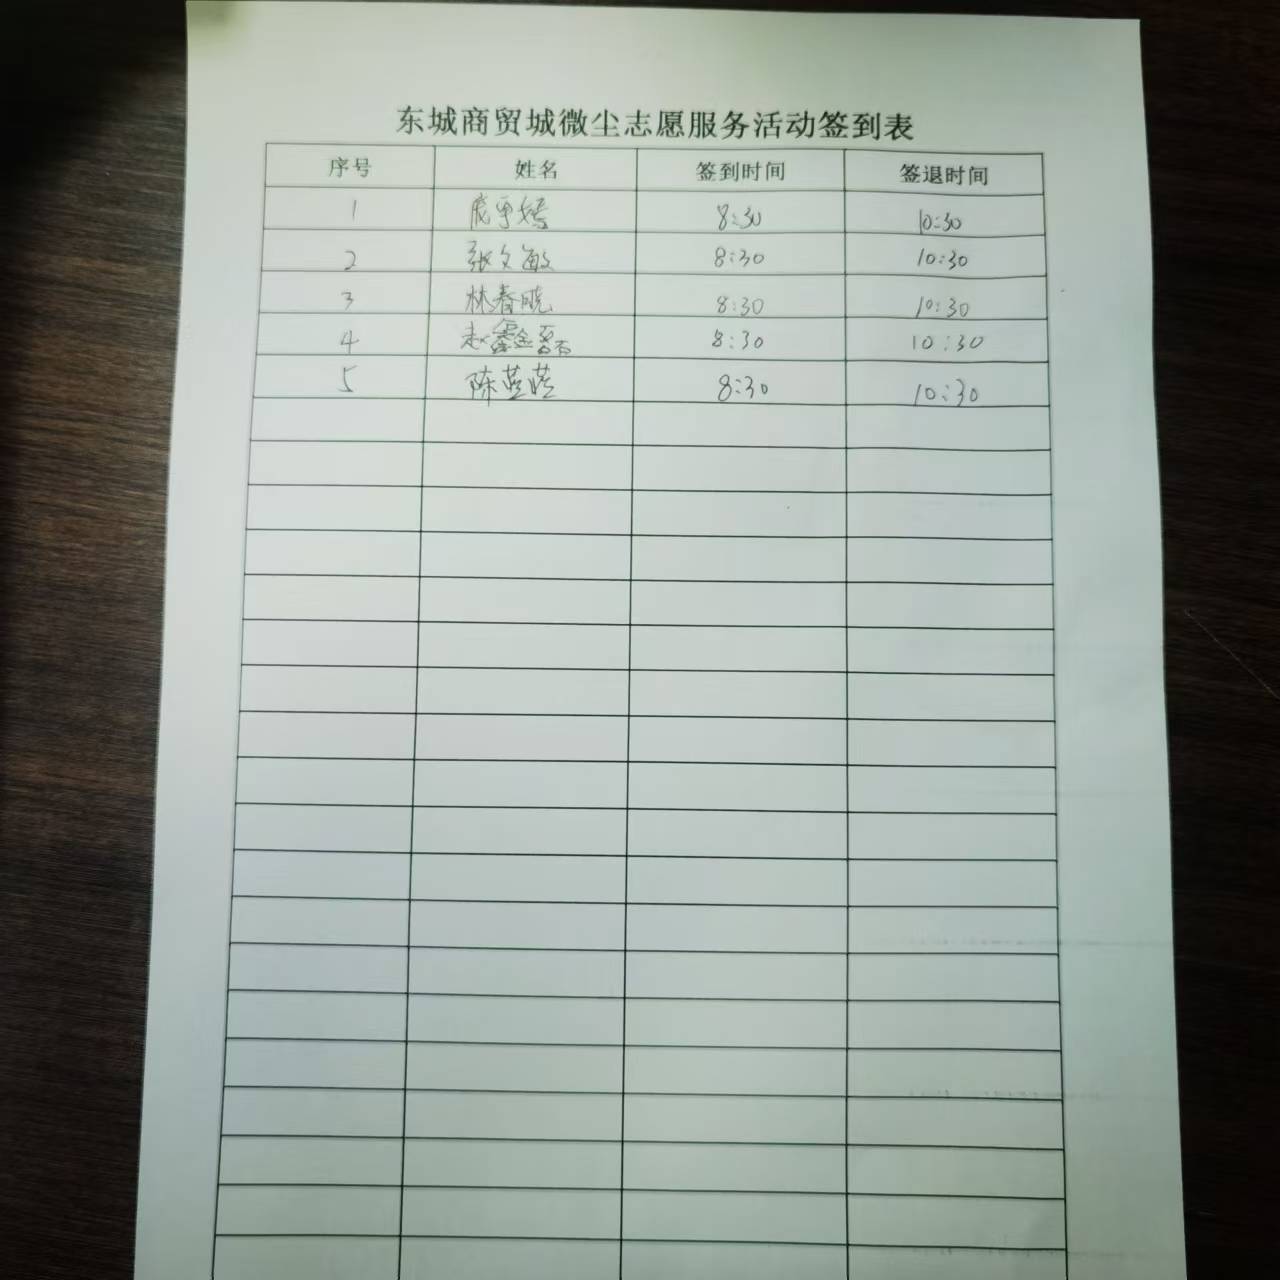 东城商贸城微尘志愿服务活动签到表
序号 姓名 签到时间 签退时间
1 8:30 10:30
2 张文敏 8:30 10:30
3 林春晓 8:30 10:30
4 赵鑫磊 8:30 10:30
5 陈 8:30 10:30